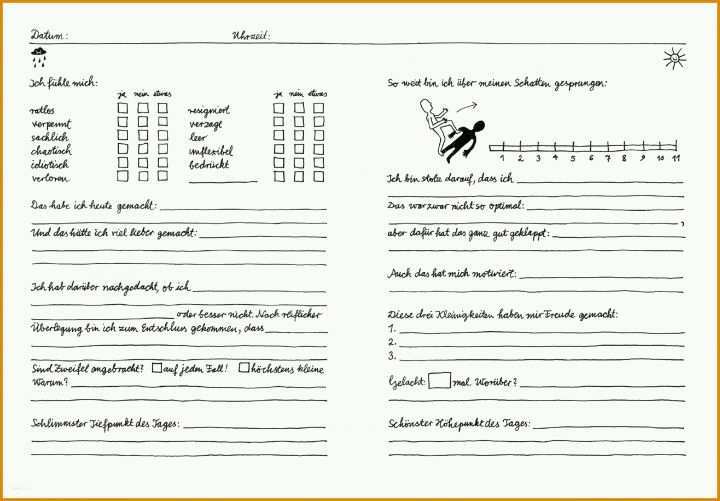 Datum: Uhrzeit:
Ich fühle mich:
ja nein etwas ja nein etwas
ratlos resigniert
verpennt verzagt
sachlich leer
chaotisch unflexibel
idiotisch bedrückt
verloren
Das habe ich heute gemacht:
Und das hätte ich viel lieber gemacht:
Ich hab darüber nachgedacht, ob ich
oder besser nicht. Nach reiflicher
Überlegung bin ich zum Entschluss gekommen, dass
Sind Zweifel angebracht? auf jeden Fall! höchstens kleine
Warum?
Schlimmster Tiefpunkt des Tages:
So weit bin ich über meinen Schatten gesprungen:
1 2 3 4 5 6 7 8 9 10 11
Ich bin stolz darauf, dass ich
Das war zwar nicht so optimal:
,
aber dafür hat das ganz gut geklappt:
Auch das hat mich motiviert:
Diese drei Kleinigkeiten haben mir Freude gemacht:
1.
2.
3.
Gelacht: mal. Worüber?
Schönster Höhepunkt des Tages: